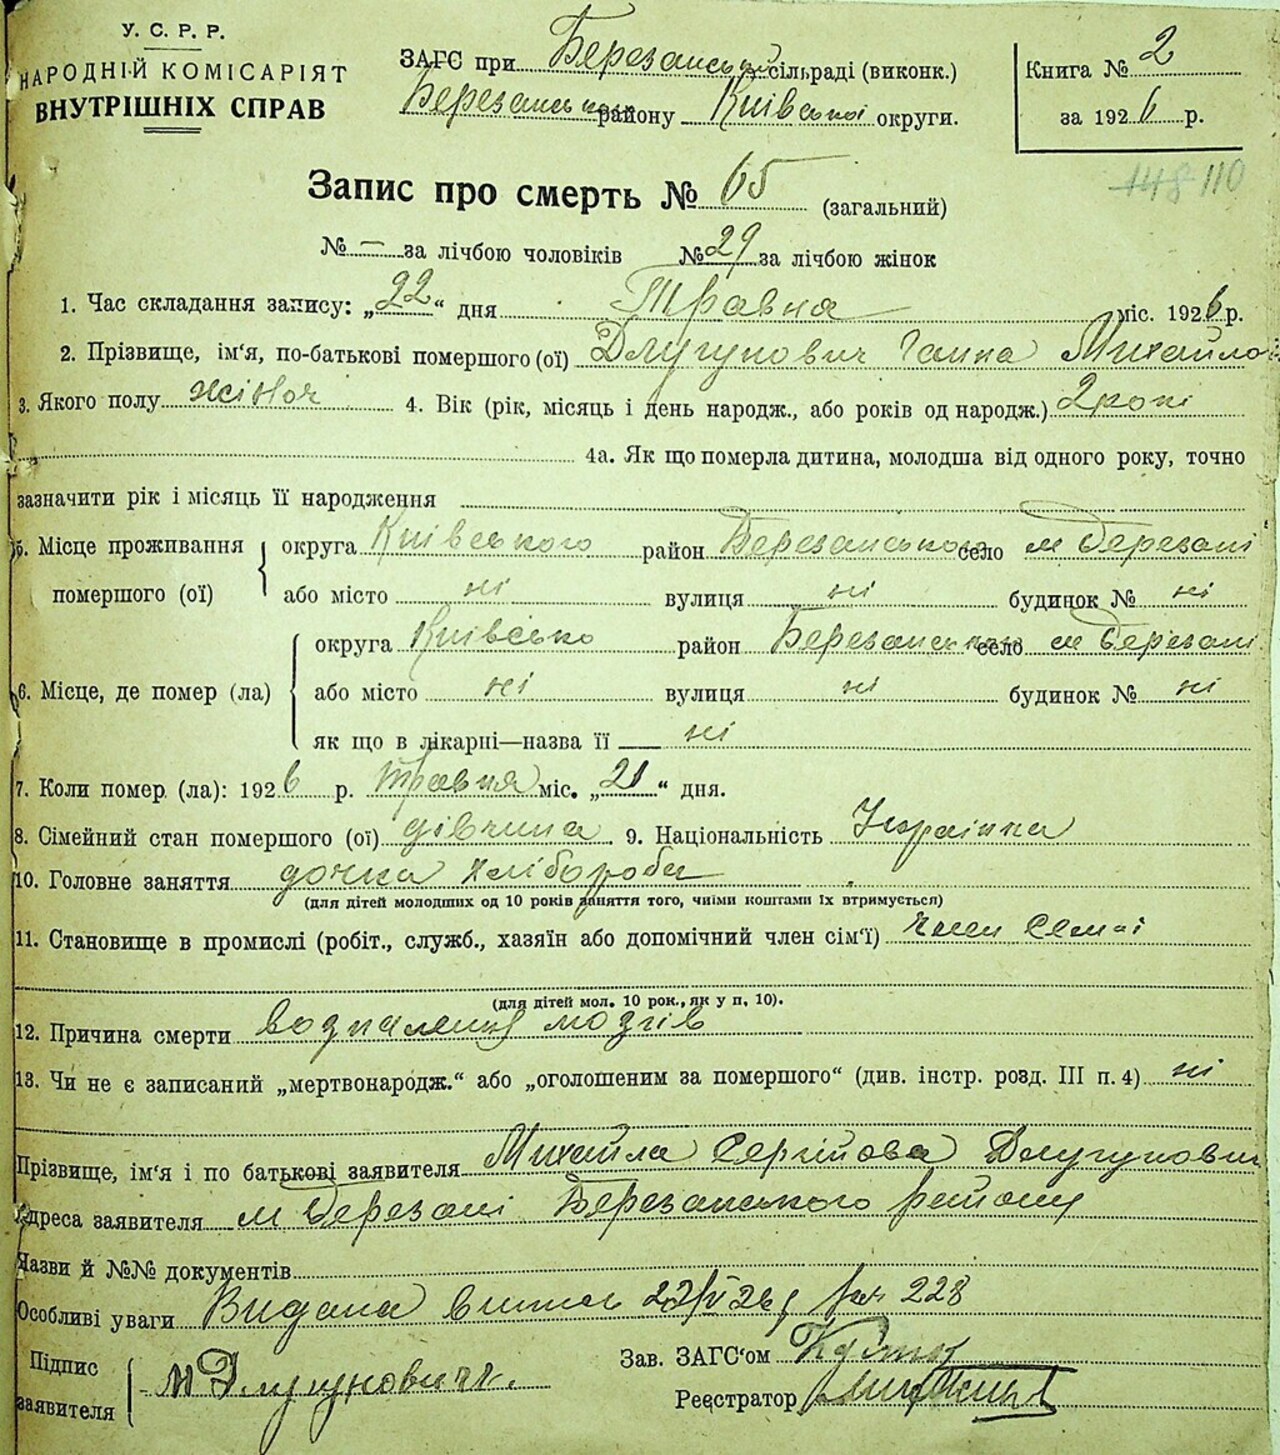 У. С. Р. Р.
НАРОДНІЙ КОМІСАРІЯТ
ВНУТРІШНІХ СПРАВ
ЗАГС при Березанській сільраді (виконк.)
Березанського району Київської округи.
Книга № 2
за 1926 р.
148 110
Запис про смерть № 65 (загальний)
№ — за лічбою чоловіків № 29 за лічбою жінок
1. Час складання запису: „22“ дня Травня міс. 1926 р.
2. Прізвище, ім‘я, по-батькові помершого (ої) Длугунович Ганна Михайло
3. Якого полу жіноч 4. Вік (рік, місяць і день народж., або років од народж.) 2 роки
4а. Як що померла дитина, молодша від одного року, точно
зазначити рік і місяць її народження
5. Місце проживання помершого (ої) округа Київського район Березанського село м Березані
або місто ні вулиця ні будинок № ні
6. Місце, де помер (ла) округа Київсько район Березанського село м Березані
або місто ні вулиця ні будинок № ні
як що в лікарні—назва її ні
7. Коли помер (ла): 1926 р. травня міс. „21“ дня.
8. Сімейний стан помершого (ої) дівчина 9. Національність Українка
10. Головне заняття дочка хлібороба
(для дітей молодших од 10 років заняття того, чиїми коштами їх втримується)
11. Становище в промислі (робіт., служб., хазяїн або допомічний член сім‘ї) член семиї
(для дітей мол. 10 рок., як у п. 10).
12. Причина смерти возпаления мозгів
13. Чи не є записаний „мертвонародж.“ або „оголошеним за помершого“ (див. інстр. розд. III п. 4) ні
Прізвище, ім‘я і по батькові заявителя Михайла Сергійова Длугунович
Адреса заявителя м Березані Березанського району
Назви й №№ документів
Особливі уваги Видана витяг 22/V 26 р. за № 228
Підпис заявителя М Длугунович.
Зав. ЗАГС‘ом
Реєстратор